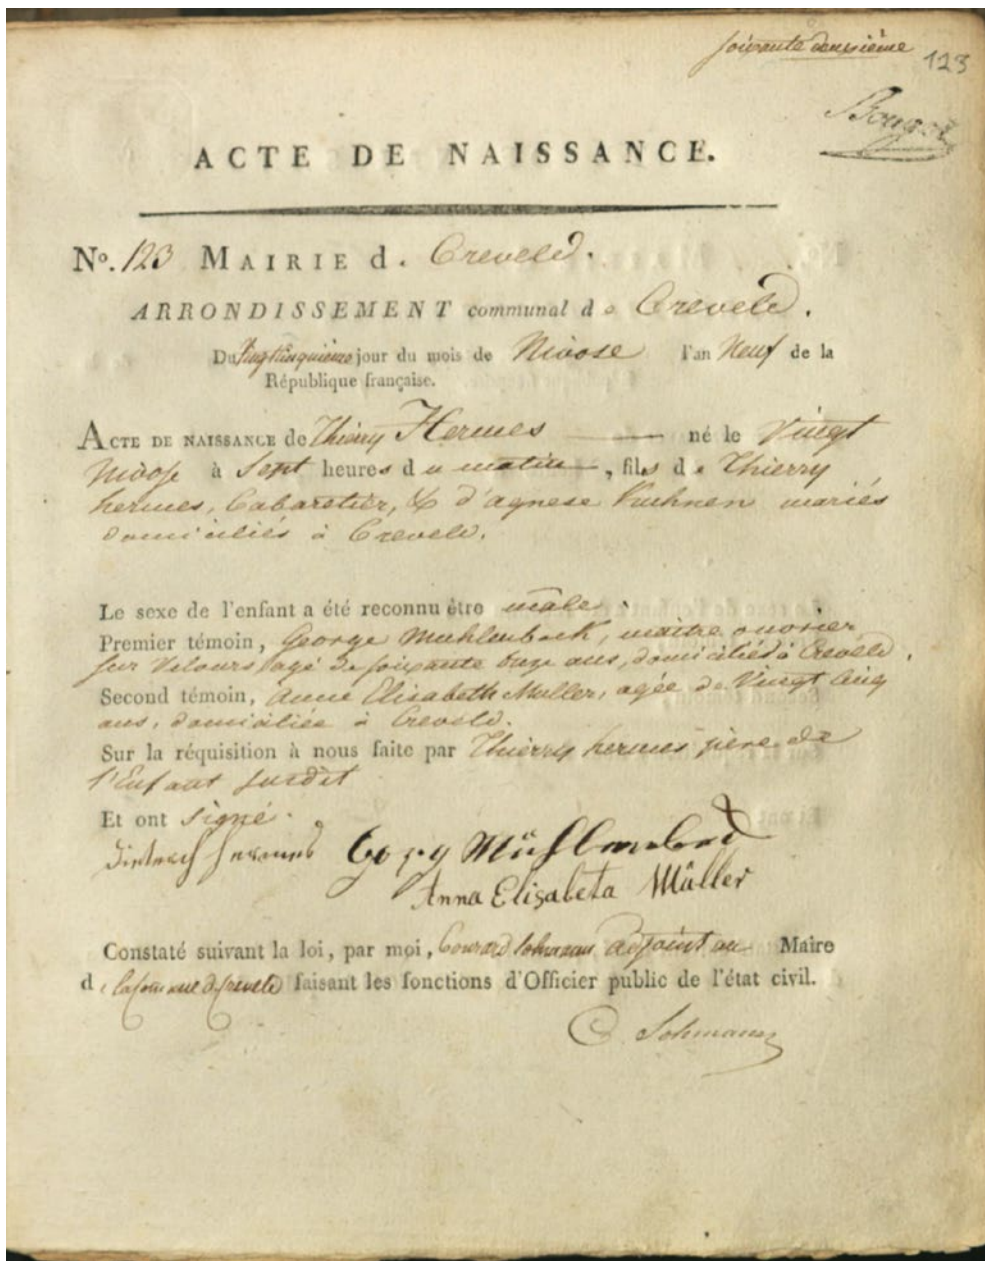 soixante deuxième
123
Bouget
ACTE DE NAISSANCE.
No. 123 MAIRIE d. Creveld.
ARRONDISSEMENT communal de Creveld.
Du Vingtcinquième jour du mois de Nivose l'an Neuf de la
République française.
ACTE DE NAISSANCE de Thierry Hermes né le Vingt
Nivose à Sept heures du matin, fils de Thierry
hermes, Cabaretier, & d'agnese Kuhnen mariés
domiciliés à Creveld.
Le sexe de l'enfant a été reconnu être mâle.
Premier témoin, George Muhlenbock, maitre ouvrier
sur Velours agé de soixante onze ans, domicilié à Creveld.
Second témoin, Anne Elisabeth Muller, agée de Vingt Cinq
ans, domiciliée à Creveld.
Sur la réquisition à nous faite par Thierry hermes père de
l'Enfant susdit
Et ont signé.
Dieterich hermes Georg Mühlenbock
Anna Elisabeta Müller
Constaté suivant la loi, par moi, Conrard Sohmann adjoint au Maire
de la Commune de Creveld faisant les fonctions d'Officier public de l'état civil.
C. Sohmann